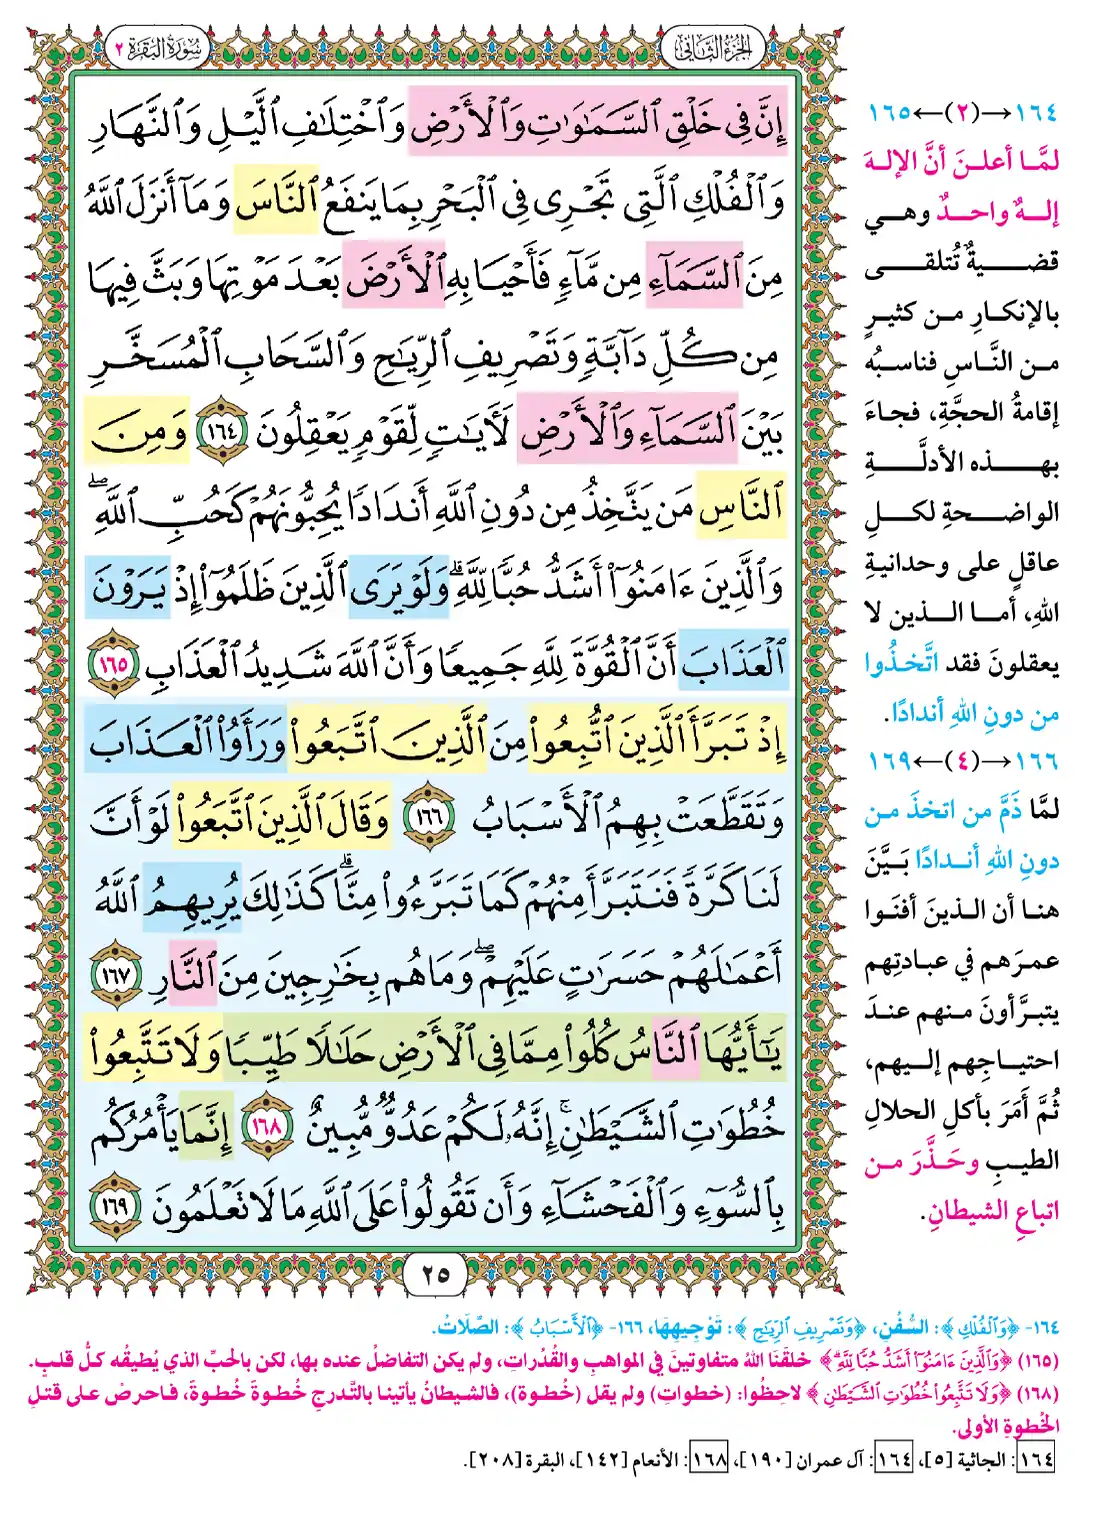 الجزء الثاني
سورة البقرة ٢
إِنَّ فِي خَلْقِ ٱلسَّمَٰوَٰتِ وَٱلْأَرْضِ وَٱخْتِلَٰفِ ٱلَّيْلِ وَٱلنَّهَارِ
وَٱلْفُلْكِ ٱلَّتِي تَجْرِي فِي ٱلْبَحْرِ بِمَا يَنفَعُ ٱلنَّاسَ وَمَآ أَنزَلَ ٱللَّهُ
مِنَ ٱلسَّمَآءِ مِن مَّآءٍ فَأَحْيَا بِهِ ٱلْأَرْضَ بَعْدَ مَوْتِهَا وَبَثَّ فِيهَا
مِن كُلِّ دَآبَّةٍ وَتَصْرِيفِ ٱلرِّيَٰحِ وَٱلسَّحَابِ ٱلْمُسَخَّرِ
بَيْنَ ٱلسَّمَآءِ وَٱلْأَرْضِ لَأٓيَٰتٍ لِّقَوْمٍ يَعْقِلُونَ ١٦٤ وَمِنَ
ٱلنَّاسِ مَن يَتَّخِذُ مِن دُونِ ٱللَّهِ أَندَادًا يُحِبُّونَهُمْ كَحُبِّ ٱللَّهِۖ
وَٱلَّذِينَ ءَامَنُوٓا۟ أَشَدُّ حُبًّا لِّلَّهِۗ وَلَوْ يَرَى ٱلَّذِينَ ظَلَمُوٓا۟ إِذْ يَرَوْنَ
ٱلْعَذَابَ أَنَّ ٱلْقُوَّةَ لِلَّهِ جَمِيعًا وَأَنَّ ٱللَّهَ شَدِيدُ ٱلْعَذَابِ ١٦٥
إِذْ تَبَرَّأَ ٱلَّذِينَ ٱتُّبِعُوا۟ مِنَ ٱلَّذِينَ ٱتَّبَعُوا۟ وَرَأَوُا۟ ٱلْعَذَابَ
وَتَقَطَّعَتْ بِهِمُ ٱلْأَسْبَابُ ١٦٦ وَقَالَ ٱلَّذِينَ ٱتَّبَعُوا۟ لَوْ أَنَّ
لَنَا كَرَّةً فَنَتَبَرَّأَ مِنْهُمْ كَمَا تَبَرَّءُوا۟ مِنَّاۗ كَذَٰلِكَ يُرِيهِمُ ٱللَّهُ
أَعْمَٰلَهُمْ حَسَرَٰتٍ عَلَيْهِمْۖ وَمَا هُم بِخَٰرِجِينَ مِنَ ٱلنَّارِ ١٦٧
يَٰٓأَيُّهَا ٱلنَّاسُ كُلُوا۟ مِمَّا فِي ٱلْأَرْضِ حَلَٰلًا طَيِّبًا وَلَا تَتَّبِعُوا۟
خُطُوَٰتِ ٱلشَّيْطَٰنِۚ إِنَّهُۥ لَكُمْ عَدُوٌّ مُّبِينٌ ١٦٨ إِنَّمَا يَأْمُرُكُم
بِٱلسُّوٓءِ وَٱلْفَحْشَآءِ وَأَن تَقُولُوا۟ عَلَى ٱللَّهِ مَا لَا تَعْلَمُونَ ١٦٩
٢٥
١٦٤→(٢)←١٦٥
لمَّا أعلنَ أنَّ الإلهَ
إلهٌ واحدٌ وهي
قضيةٌ تُتلقى
بالإنكارِ من كثيرٍ
من النَّاسِ فناسبُه
إقامةُ الحجَّةِ، فجاءَ
بهذه الأدلَّةِ
الواضحةِ لكلِ
عاقلٍ على وحدانيةِ
اللهِ، أما الذين لا
يعقلونَ فقد اتَّخذُوا
من دونِ اللهِ أندادًا.
١٦٦→(٤)←١٦٩
لمَّا ذَمَّ من اتخذَ من
دونِ اللهِ أندادًا بَيَّنَ
هنا أن الذينَ أفنَوا
عمرَهم في عبادتِهم
يتبرَّأونَ منهم عندَ
احتياجِهم إليهم،
ثُمَّ أمَرَ بأكلِ الحلالِ
الطيبِ وحَذَّرَ من
اتباعِ الشيطانِ.
١٦٤- ﴿وَٱلْفُلْكِ﴾: السُّفُنِ، ﴿وَتَصْرِيفِ ٱلرِّيَٰحِ﴾: تَوْجِيهِهَا، ١٦٦- ﴿ٱلْأَسْبَابُ﴾: الصِّلَاتُ.
(١٦٥) ﴿وَٱلَّذِينَ ءَامَنُوٓا۟ أَشَدُّ حُبًّا لِّلَّهِۗ﴾ خلقَنَا اللهُ متفاوتينَ في المواهبِ والقُدُراتِ، ولم يكن التفاضلُ عنده بها، لكن بالحبِّ الذي يُطيقُه كلُّ قلبٍ.
(١٦٨) ﴿وَلَا تَتَّبِعُوا۟ خُطُوَٰتِ ٱلشَّيْطَٰنِ﴾ لاحِظُوا: (خطواتِ) ولم يقل (خُطوة)، فالشيطانُ يأتينا بالتَّدرجِ خُطوةً خُطوةً، فاحرصْ على قتلِ
الخُطوةِ الأولى.
١٦٤: الجاثية [٥]، ١٦٤: آل عمران [١٩٠]، ١٦٨: الأنعام [١٤٢]، البقرة [٢٠٨].